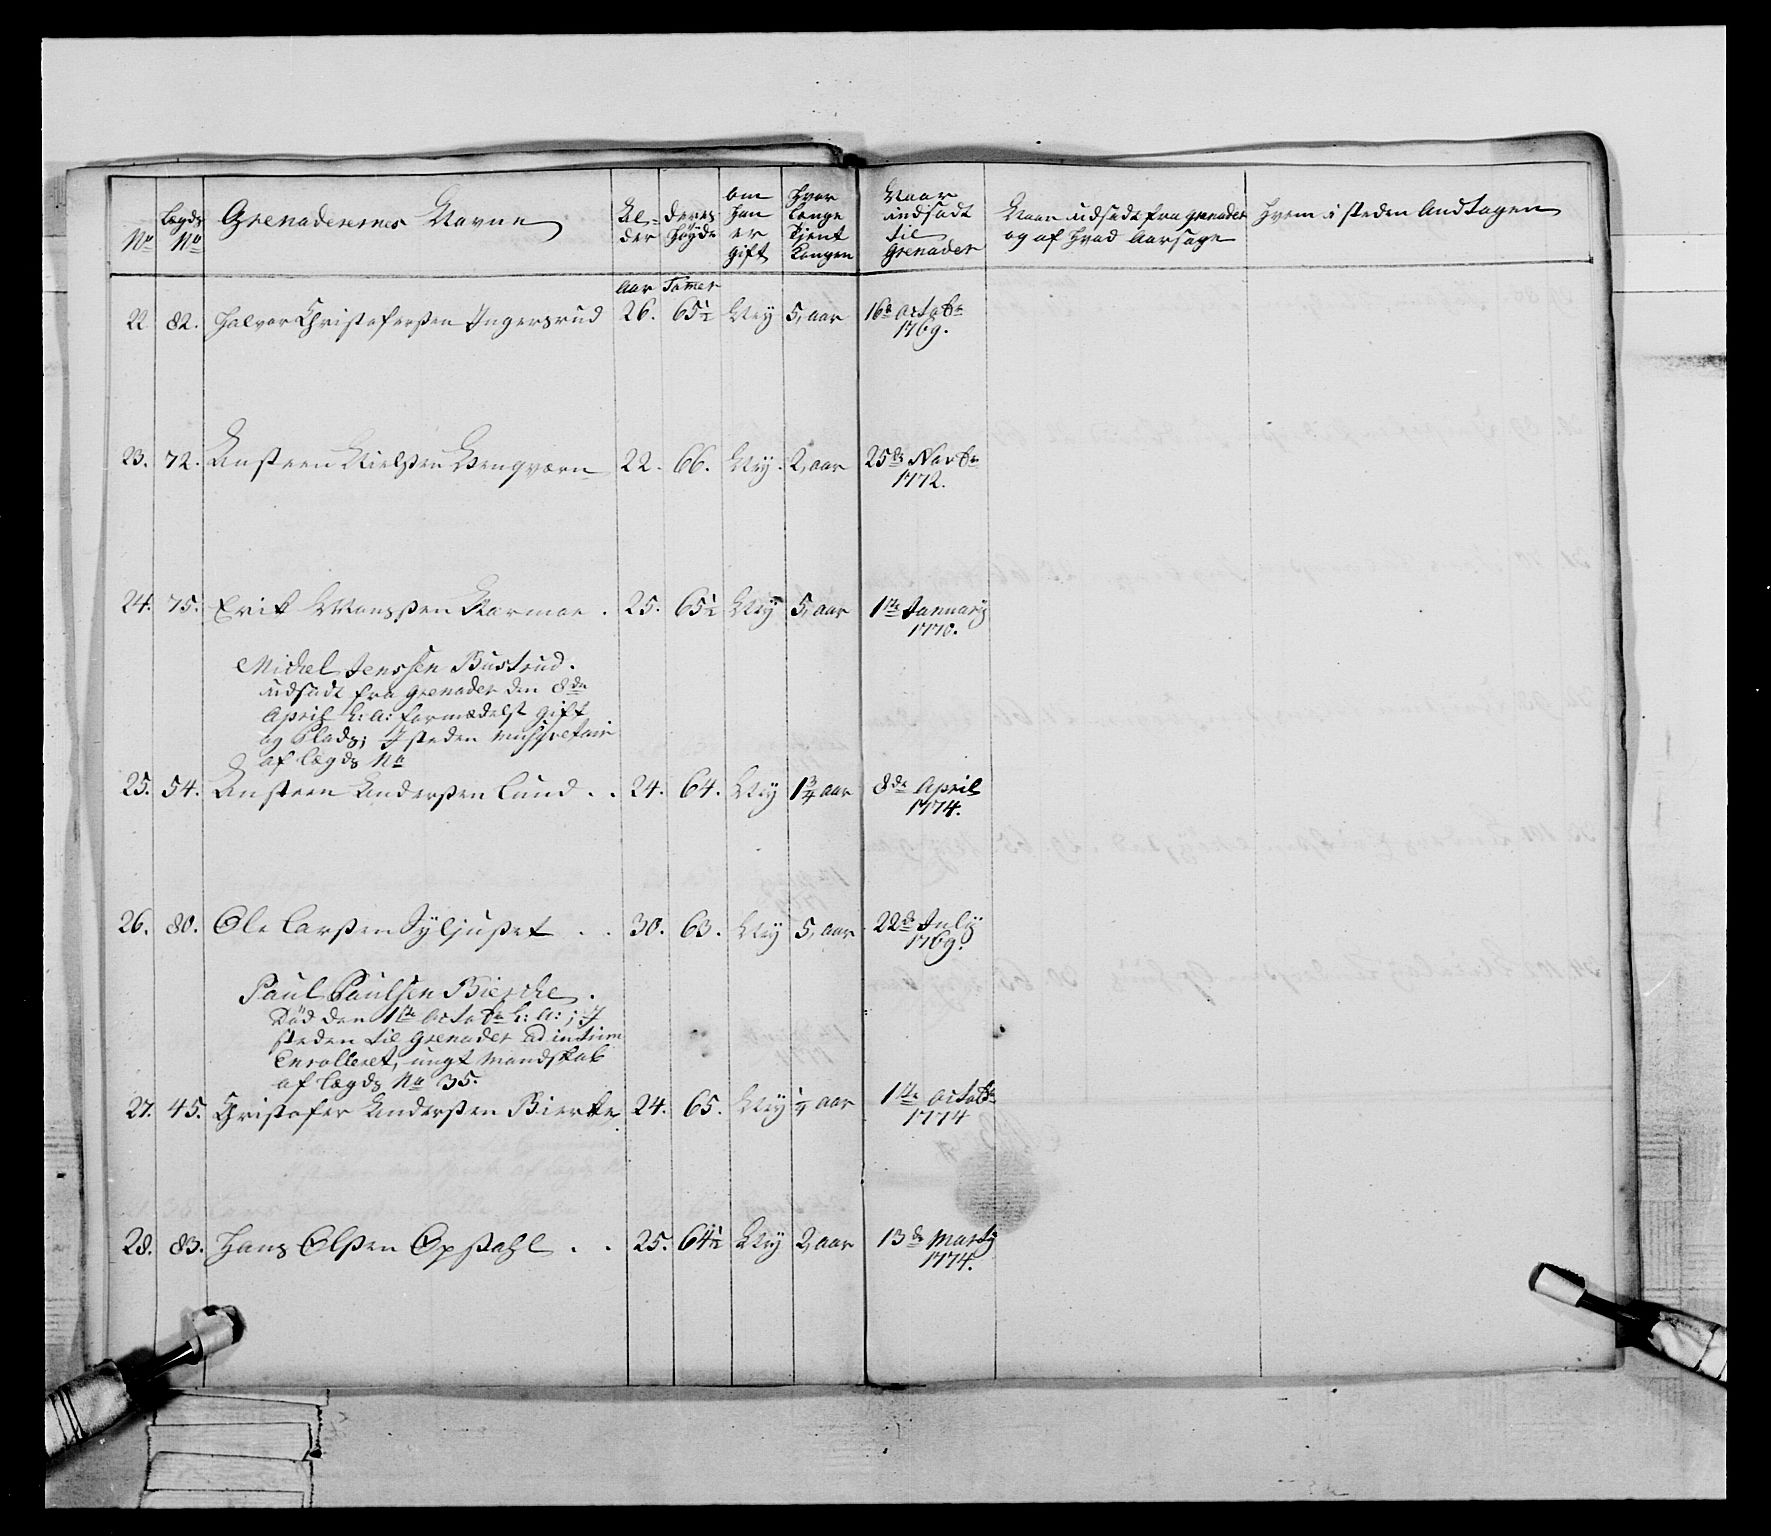 No
Lægds No
Grenaderernes Navne
Al-
der
deres
Høyde
om
han
er
gift
hvor
længe
tient
Kongen
Naar
indsadt
til
Grenader
Naar udsadt fra Grenader
og af hvad Aarsage
hvem i steden Andtagen
Aar Tomer
22 82. Halvor Christophersen Ingersrud 26. 65½ Ney 5, aar 16de octobr
1769.
23. 72. Ansteen Nielsen 22. 66. Ney. 2, aar 25de Novbr
1772.
24. 75. Erik Monssen 25. 65½ Ney 5, aar 1ste January
1770.
Michel Jenssen Bustrud.
udsadt fra Grenader den 8de
April h: a: formedelst gift
og Plads; I steden Musqvetair
af Lægds No
25. 54. Ansteen Andersen Lund . . 24. 64. Ney 1¾ aar 8de April
1774.
26. 80. Ole Larsen Syljuset . . 30. 63. Ney 5, aar 22de July
1769.
Paul Paulsen Biercke.
Død den 1ste Octobr h: a: ; I
steden til Grenader ad intrim
Enrolleret, ungt Mandskab
af Lægds No 35.
27. 45. Christofer Andersen Bierke 24. 65. Ney ¼ aar 1ste octobr
1774
28. 83. Hans Olsen Opstahl . . 25. 64½ Ney 2, aar 13de Marty
1774.